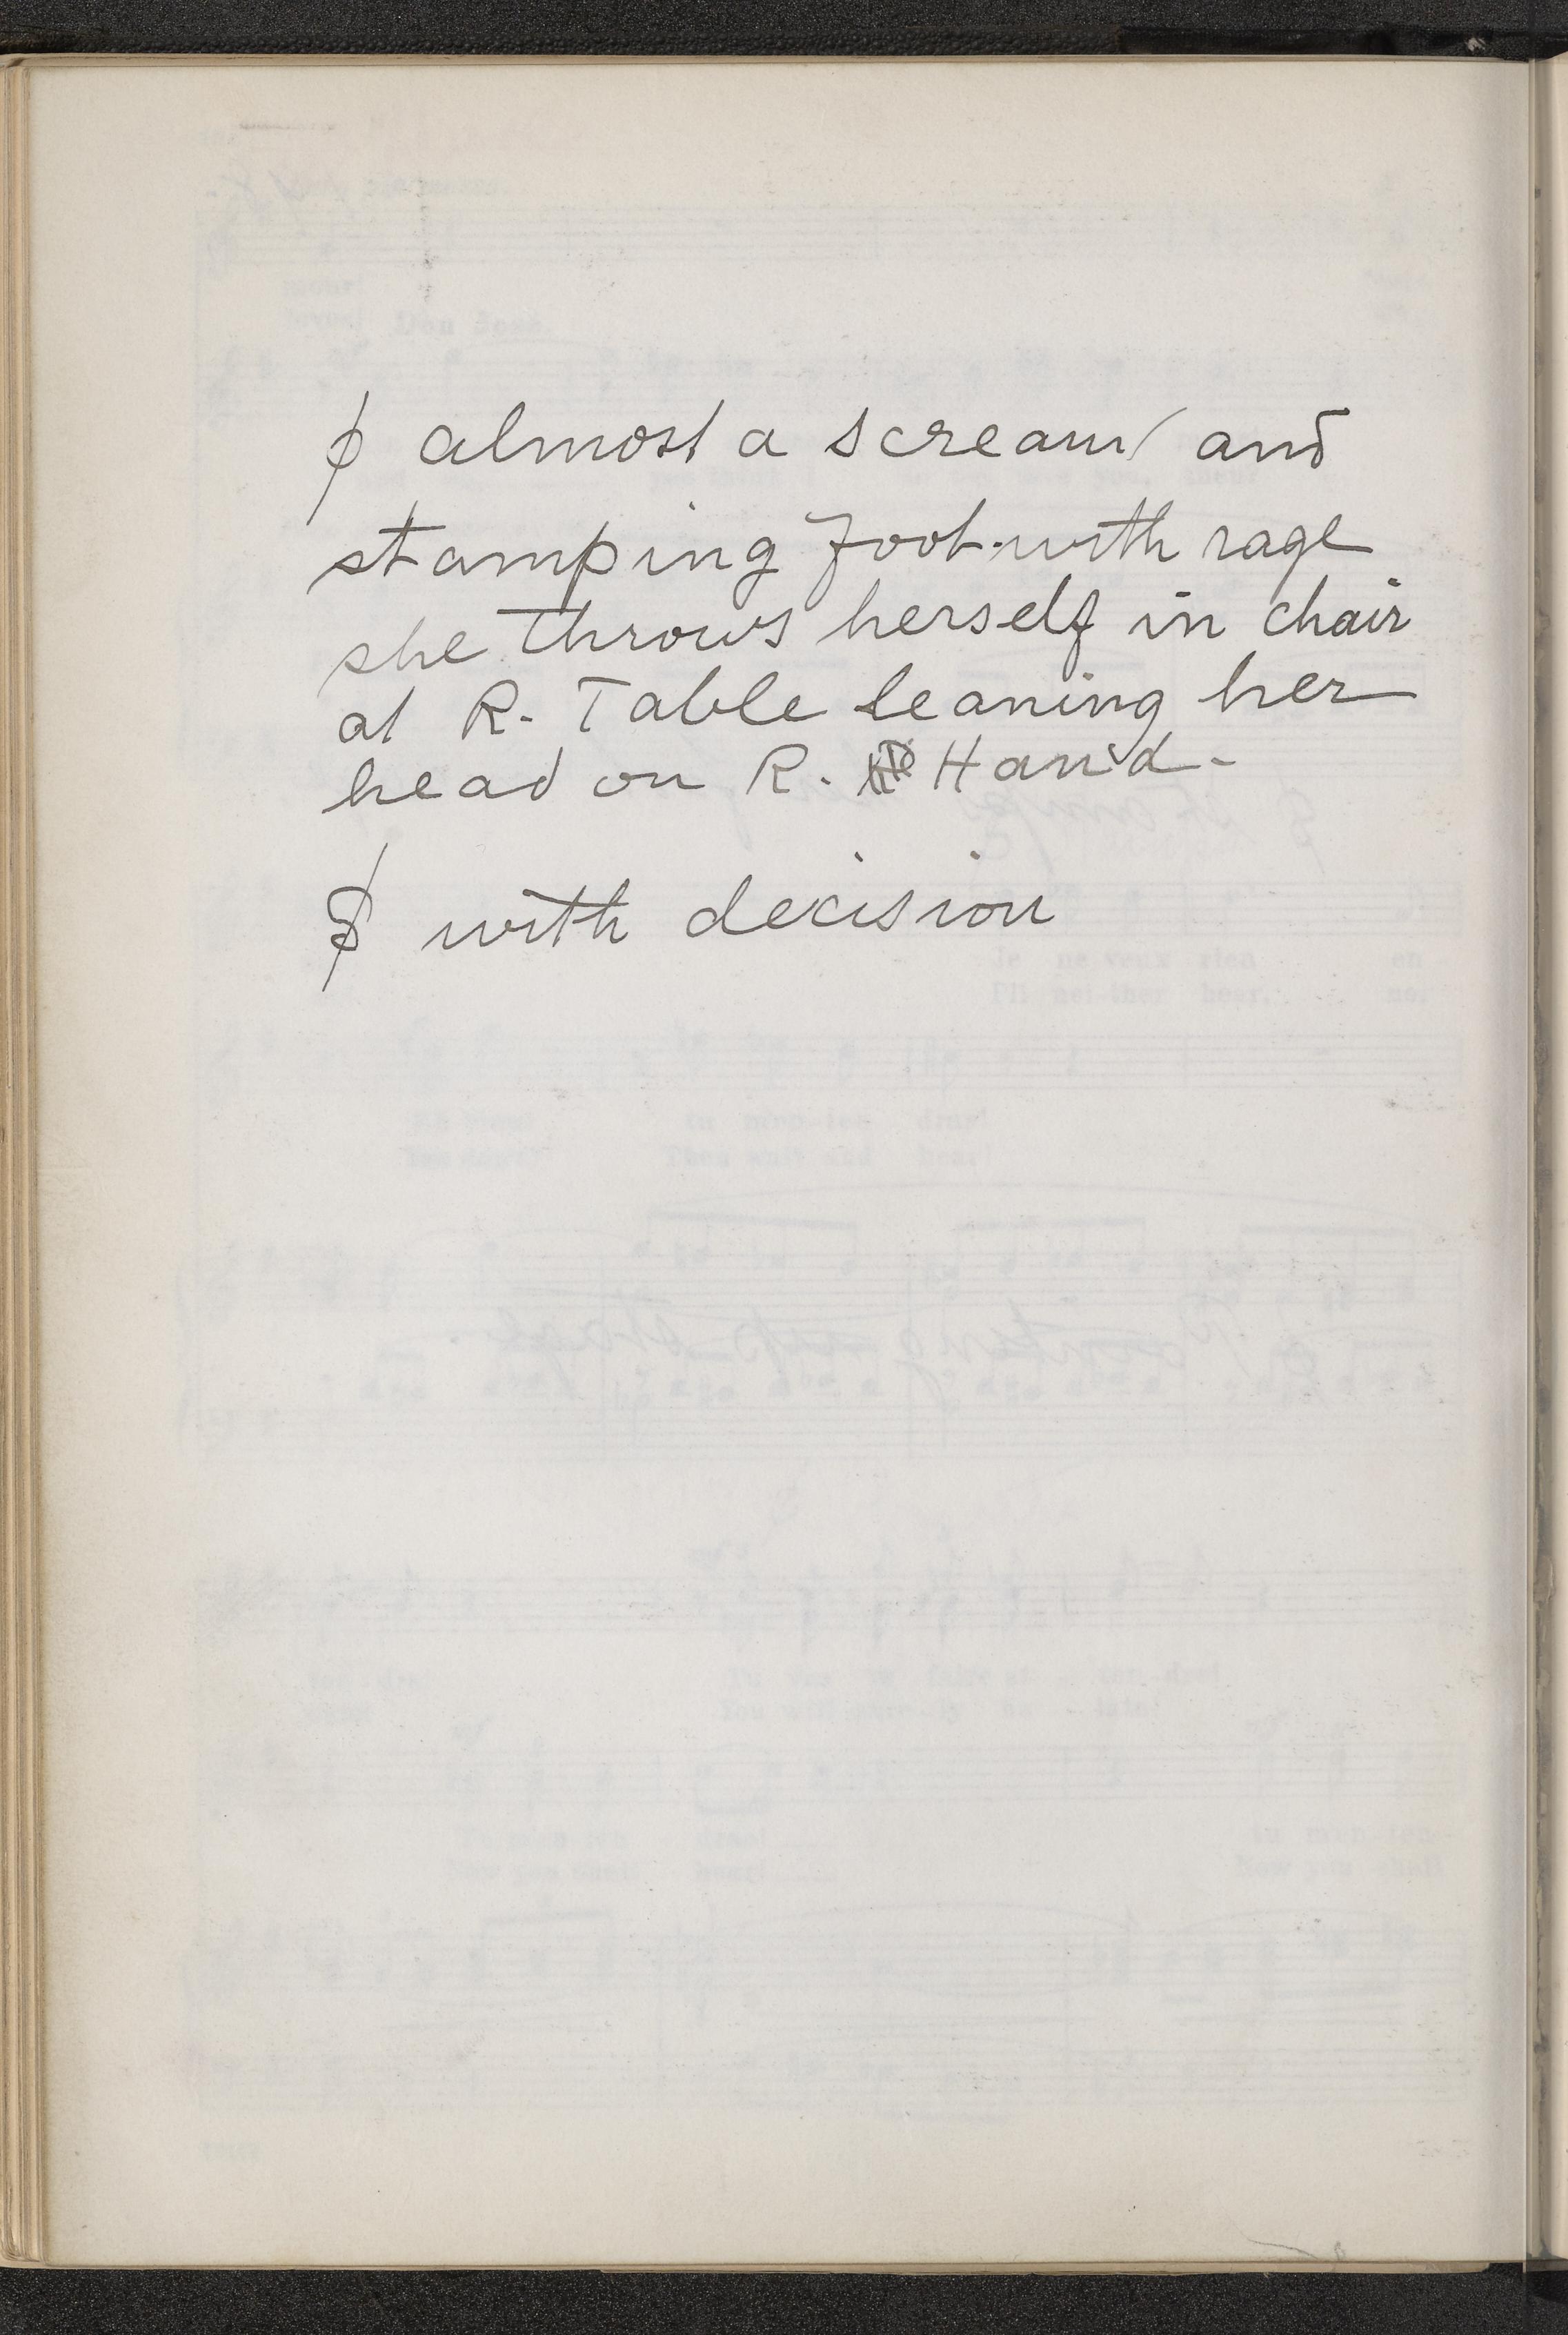 ϕ almost a scream/ and
stamping foot with rage
she throws herself in chair
at R. Table leaning her
head on R. Hand-
with decision